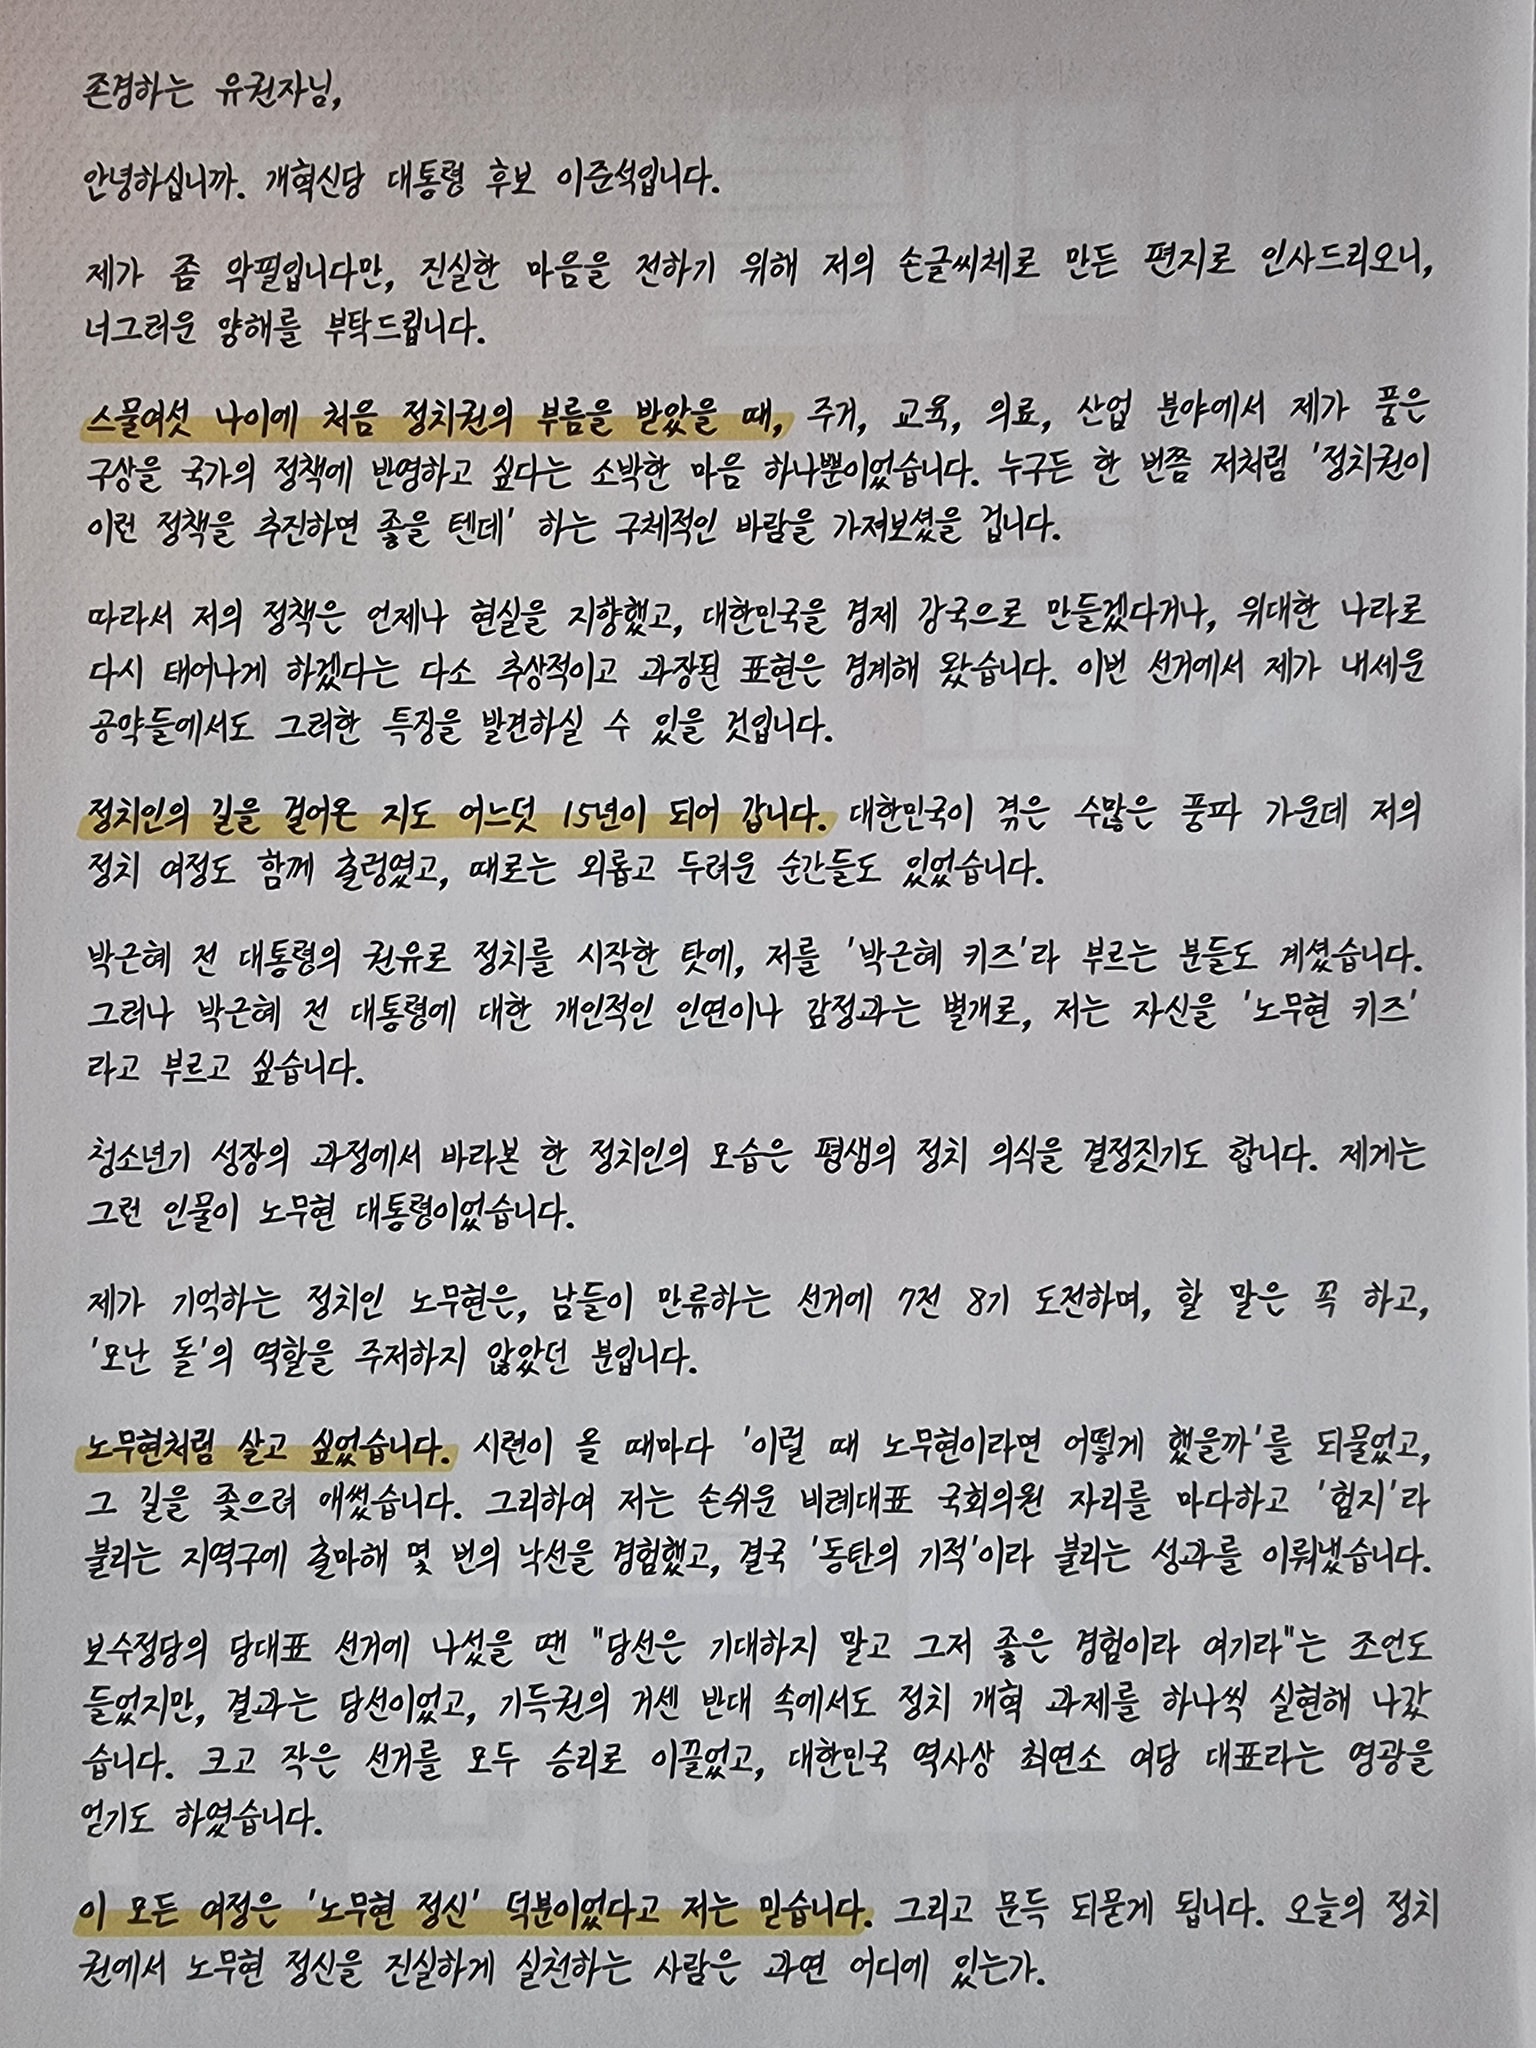 존경하는 유권자님,
안녕하십니까. 개혁신당 대통령 후보 이준석입니다.
제가 좀 악필입니다만, 진실한 마음을 전하기 위해 저의 손글씨체로 만든 편지로 인사드리오니,
너그러운 양해를 부탁드립니다.
스물여섯 나이에 처음 정치권의 부름을 받았을 때, 주거, 교육, 의료, 산업 분야에서 제가 품은
구상을 국가의 정책에 반영하고 싶다는 소박한 마음 하나뿐이었습니다. 누구든 한 번쯤 저처럼 '정치권이
이런 정책을 추진하면 좋을 텐데' 하는 구체적인 바람을 가져보셨을 겁니다.
따라서 저의 정책은 언제나 현실을 지향했고, 대한민국을 경제 강국으로 만들겠다거나, 위대한 나라로
다시 태어나게 하겠다는 다소 추상적이고 과장된 표현은 경계해 왔습니다. 이번 선거에서 제가 내세운
공약들에서도 그러한 특징을 발견하실 수 있을 것입니다.
정치인의 길을 걸어온 지도 어느덧 15년이 되어 갑니다. 대한민국이 겪은 수많은 풍파 가운데 저의
정치 여정도 함께 출렁였고, 때로는 외롭고 두려운 순간들도 있었습니다.
박근혜 전 대통령의 권유로 정치를 시작한 탓에, 저를 '박근혜 키즈'라 부르는 분들도 계셨습니다.
그러나 박근혜 전 대통령에 대한 개인적인 인연이나 감정과는 별개로, 저는 자신을 '노무현 키즈'
라고 부르고 싶습니다.
청소년기 성장의 과정에서 바라본 한 정치인의 모습은 평생의 정치 의식을 결정짓기도 합니다. 제게는
그런 인물이 노무현 대통령이었습니다.
제가 기억하는 정치인 노무현은, 남들이 만류하는 선거에 7전 8기 도전하며, 할 말은 꼭 하고,
'모난 돌'의 역할을 주저하지 않았던 분입니다.
노무현처럼 살고 싶었습니다. 시련이 올 때마다 '이럴 때 노무현이라면 어떻게 했을까'를 되물었고,
그 길을 좇으려 애썼습니다. 그리하여 저는 손쉬운 비례대표 국회의원 자리를 마다하고 '험지'라
불리는 지역구에 출마해 몇 번의 낙선을 경험했고, 결국 '동탄의 기적'이라 불리는 성과를 이뤄냈습니다.
보수정당의 당대표 선거에 나섰을 땐 "당선은 기대하지 말고 그저 좋은 경험이라 여기라"는 조언도
들었지만, 결과는 당선이었고, 기득권의 거센 반대 속에서도 정치 개혁 과제를 하나씩 실현해 나갔
습니다. 크고 작은 선거를 모두 승리로 이끌었고, 대한민국 역사상 최연소 여당 대표라는 영광을
얻기도 하였습니다.
이 모든 여정은 '노무현 정신' 덕분이었다고 저는 믿습니다. 그리고 문득 되묻게 됩니다. 오늘의 정치
권에서 노무현 정신을 진실하게 실천하는 사람은 과연 어디에 있는가.